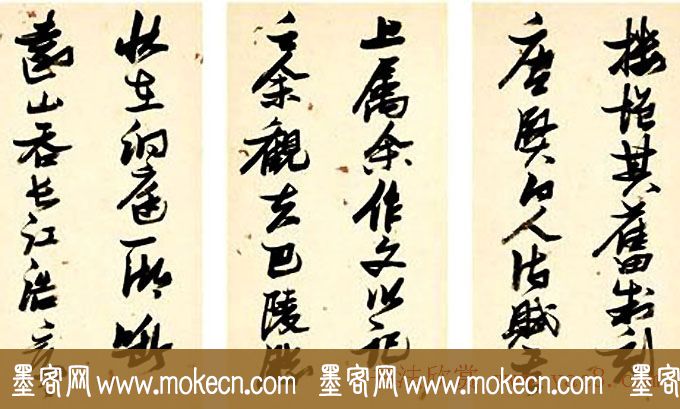 楼增其舊制刻
唐賢今人诗賦于
上属余作文以記
之余觀夫巴陵勝
状在洞庭一湖銜
遠山吞长江浩
墨客网 www.mokecn.com 墨客网 www.mokecn.com 墨客网
法欣赏